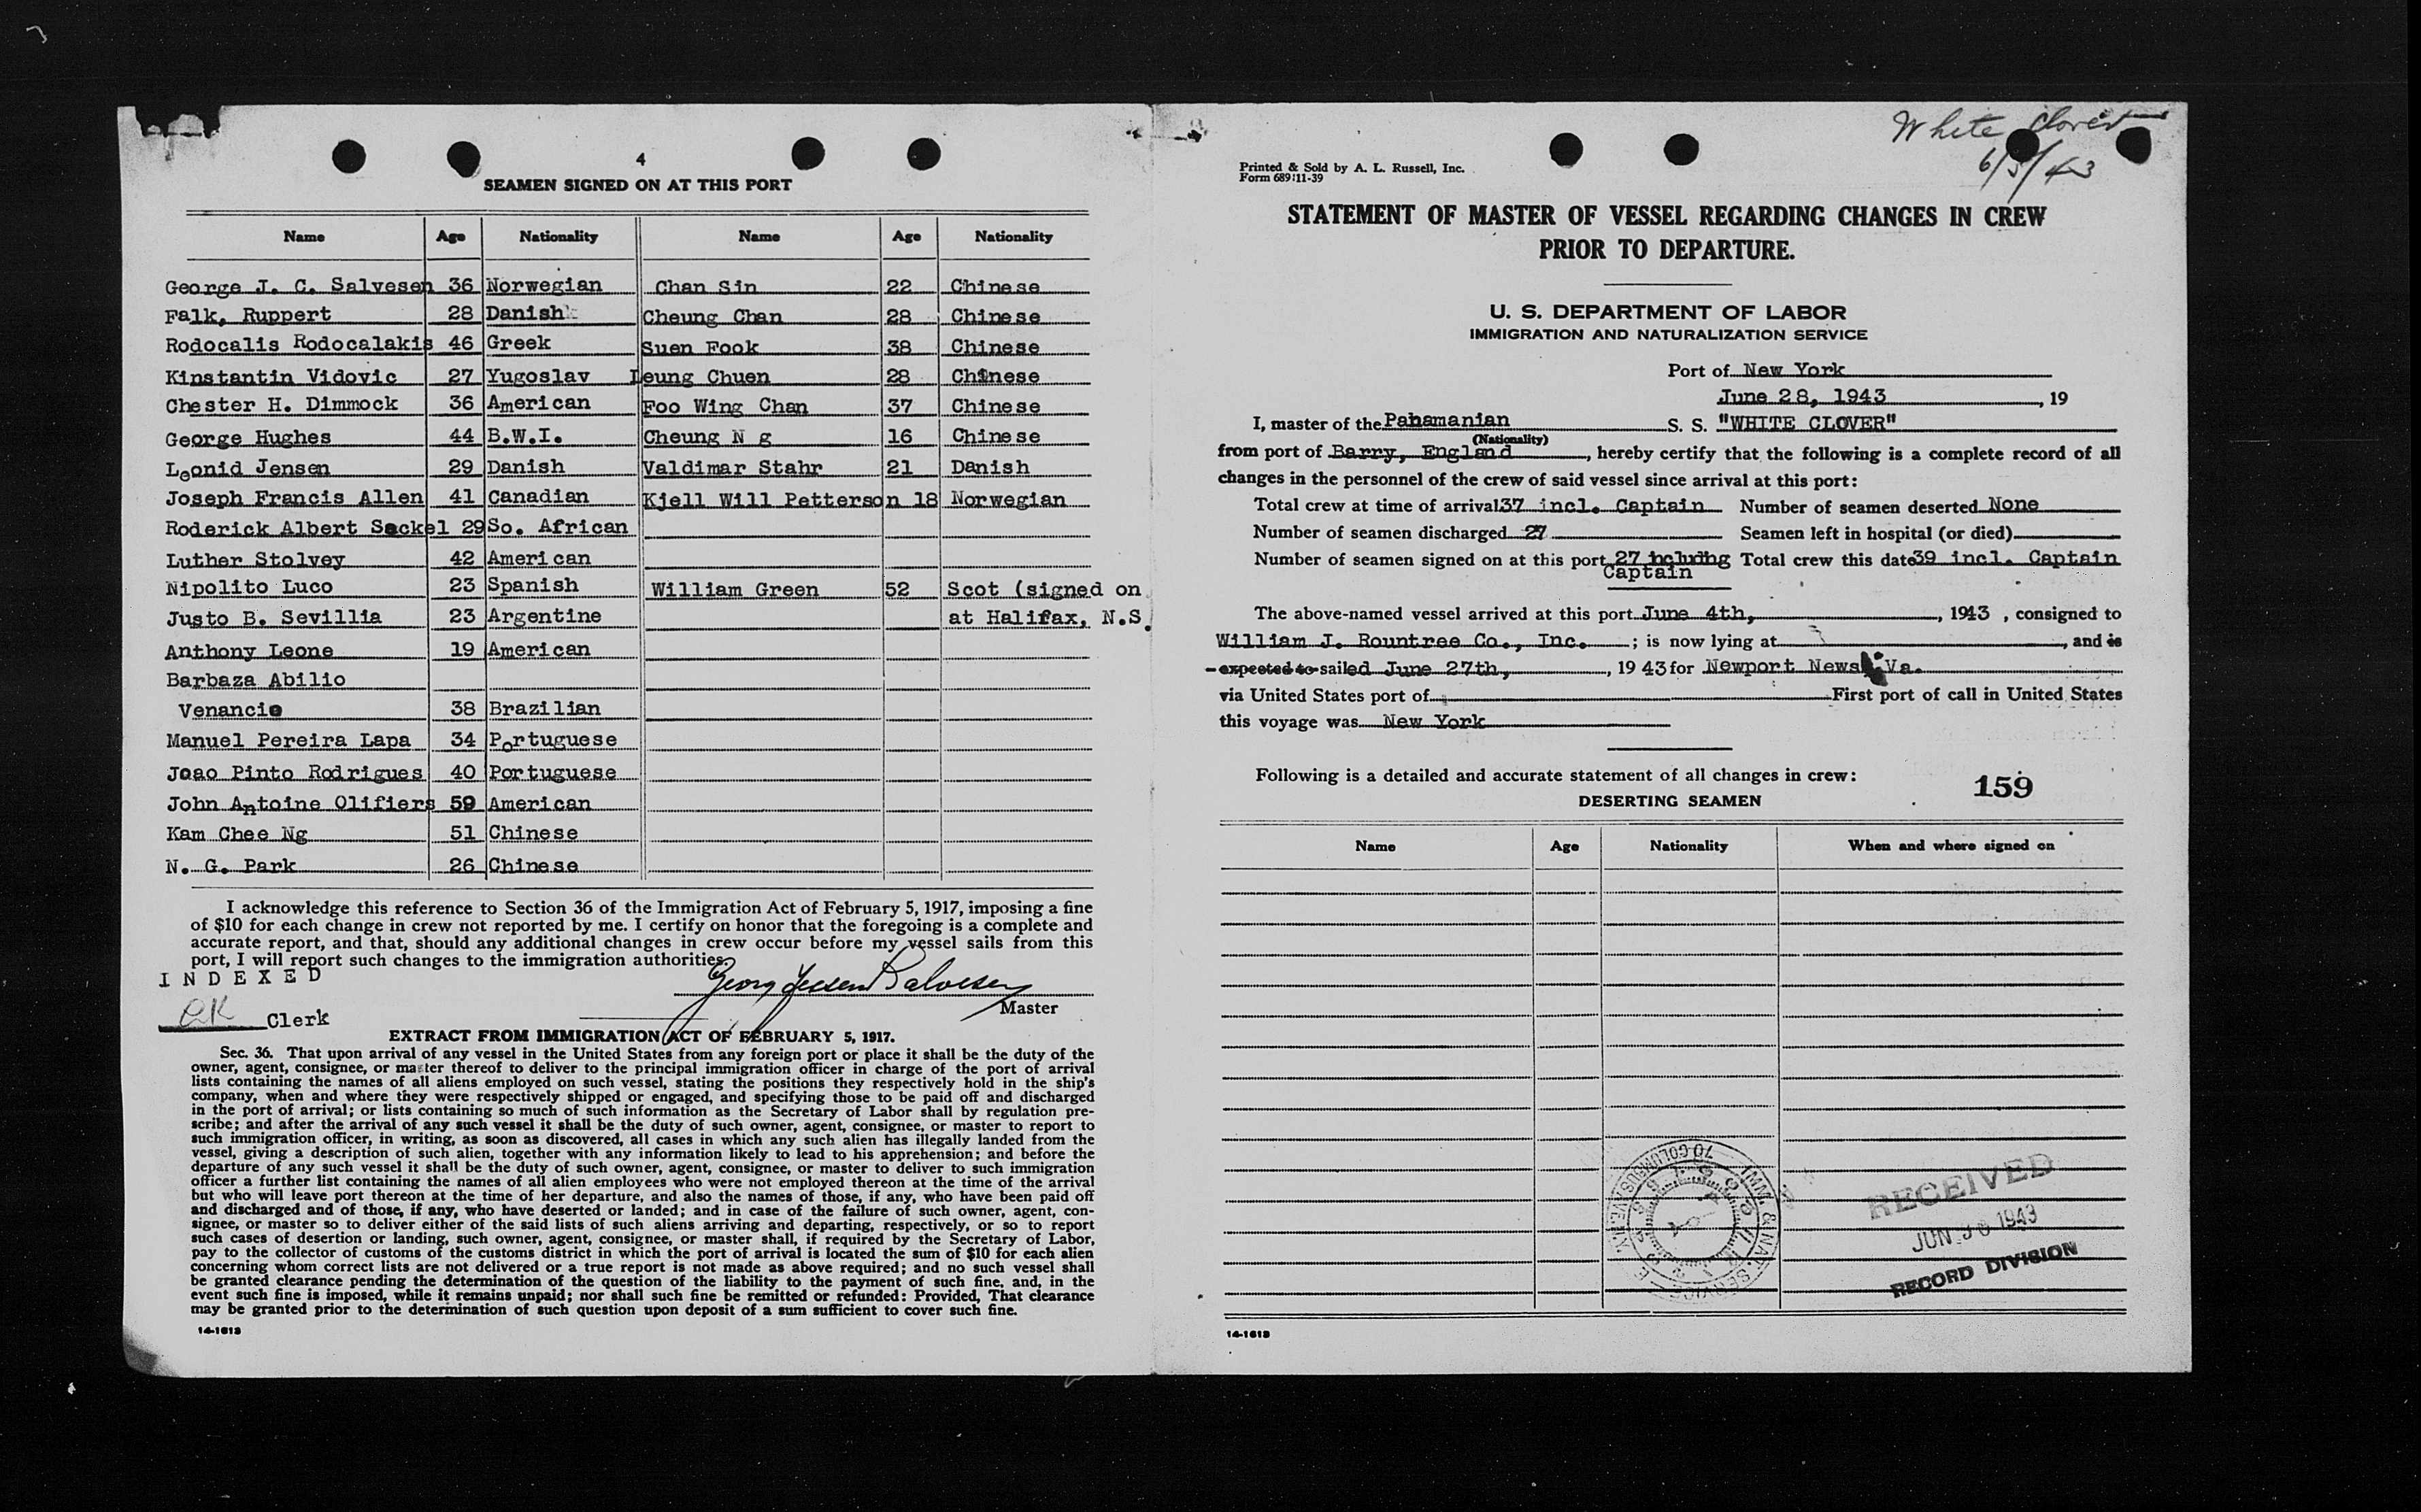 4
SEAMEN SIGNED ON AT THIS PORT
Name Age Nationality Name Age Nationality
George J. C. Salvesen 36 Norwegian Chan Sin 22 Chinese
Falk, Ruppert 28 Danish Cheung Chan 28 Chinese
Rodocalis Rodocalakis 46 Greek Suen Fook 38 Chinese
Kinstantin Vidovic 27 Yugoslav Leung Chuen 28 Chinese
Chester H. Dimmock 36 American Foo Wing Chan 37 Chinese
George Hughes 44 B.W.I. Cheung N g 16 Chinese
Leonid Jensen 29 Danish Valdimar Stahr 21 Danish
Joseph Francis Allen 41 Canadian Kjell Will Petterson 18 Norwegian
Roderick Albert Sackel 29 So. African
Luther Stolvey 42 American
Nipolito Luco 23 Spanish William Green 52 Scot (signed on
Justo B. Sevillia 23 Argentine at Halifax, N.S.
Anthony Leone 19 American
Barbaza Abilio
Venancio 38 Brazilian
Manuel Pereira Lapa 34 Portuguese
Joao Pinto Rodrigues 40 Portuguese
John Antoine Olifiers 59 American
Kam Chee Ng 51 Chinese
N. G. Park 26 Chinese
I acknowledge this reference to Section 36 of the Immigration Act of February 5, 1917, imposing a fine
of $10 for each change in crew not reported by me. I certify on honor that the foregoing is a complete and
accurate report, and that, should any additional changes in crew occur before my vessel sails from this
port, I will report such changes to the immigration authorities.
INDEXED
Georg Jessen Salvesen
Master
Clerk
EXTRACT FROM IMMIGRATION ACT OF FEBRUARY 5, 1917.
Sec. 36. That upon arrival of any vessel in the United States from any foreign port or place it shall be the duty of the
owner, agent, consignee, or master thereof to deliver to the principal immigration officer in charge of the port of arrival
lists containing the names of all aliens employed on such vessel, stating the positions they respectively hold in the ship's
company, when and where they were respectively shipped or engaged, and specifying those to be paid off and discharged
in the port of arrival; or lists containing so much of such information as the Secretary of Labor shall by regulation pre-
scribe; and after the arrival of any such vessel it shall be the duty of such owner, agent, consignee, or master to report to
such immigration officer, in writing, as soon as discovered, all cases in which any such alien has illegally landed from the
vessel, giving a description of such alien, together with any information likely to lead to his apprehension; and before the
departure of any such vessel it shall be the duty of such owner, agent, consignee, or master to deliver to such immigration
officer a further list containing the names of all alien employees who were not employed thereon at the time of the arrival
but who will leave port thereon at the time of her departure, and also the names of those, if any, who have been paid off
and discharged and of those, if any, who have deserted or landed; and in case of the failure of such owner, agent, con-
signee, or master so to deliver either of the said lists of such aliens arriving and departing, respectively, or so to report
such cases of desertion or landing, such owner, agent, consignee, or master shall, if required by the Secretary of Labor,
pay to the collector of customs of the customs district in which the port of arrival is located the sum of $10 for each alien
concerning whom correct lists are not delivered or a true report is not made as above required; and no such vessel shall
be granted clearance pending the determination of the question of the liability to the payment of such fine, and, in the
event such fine is imposed, while it remains unpaid; nor shall such fine be remitted or refunded: Provided, That clearance
may be granted prior to the determination of such question upon deposit of a sum sufficient to cover such fine.
14-1613
White Clover
6/5/43
Printed & Sold by A. L. Russell, Inc.
Form 689:11-39
STATEMENT OF MASTER OF VESSEL REGARDING CHANGES IN CREW
PRIOR TO DEPARTURE.
U. S. DEPARTMENT OF LABOR
IMMIGRATION AND NATURALIZATION SERVICE
Port of New York
June 28, 1943, 19
I, master of the Panamanian S. S. "WHITE CLOVER"
(Nationality)
from port of Barry, England, hereby certify that the following is a complete record of all
changes in the personnel of the crew of said vessel since arrival at this port:
Total crew at time of arrival 37 incl. Captain Number of seamen deserted None
Number of seamen discharged 27 Seamen left in hospital (or died)
Number of seamen signed on at this port 27 including Total crew this date 39 incl. Captain
Captain
The above-named vessel arrived at this port June 4th, , 1943 , consigned to
William J. Rountree Co., Inc. ; is now lying at , and is
expected to sailed June 27th, , 1943 for Newport News, Va.
via United States port of First port of call in United States
this voyage was New York
Following is a detailed and accurate statement of all changes in crew:
159
DESERTING SEAMEN
Name Age Nationality When and where signed on
IMM. & NAT. SERVICE
70 COLUMBUS AVE. N.Y.
RECEIVED
JUN 30 1943
RECORD DIVISION
14-1613